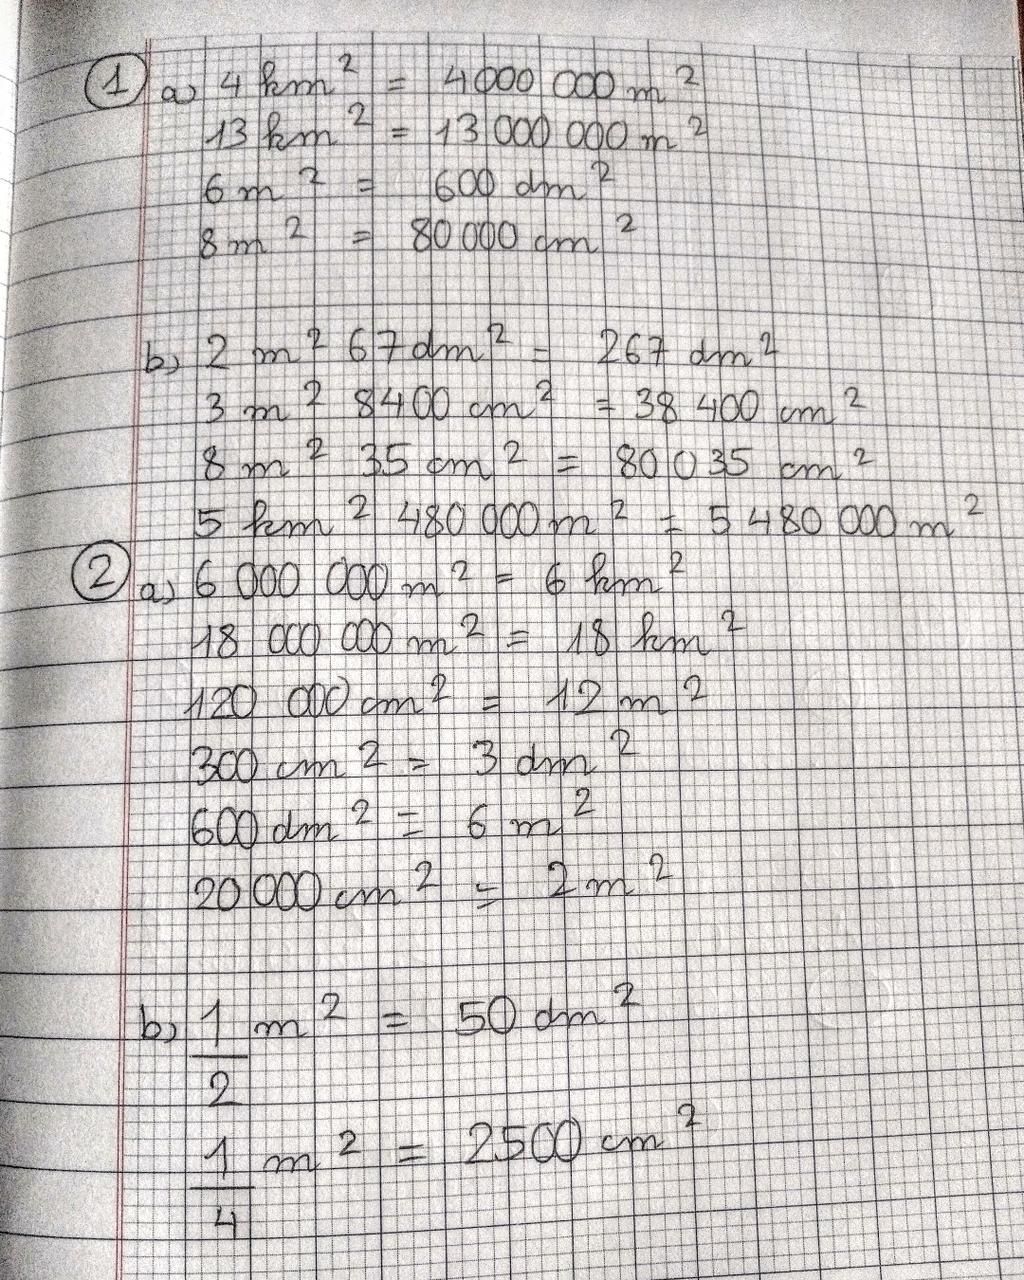 1 a) 4 km² = 4000 000 m²
13 km² = 13 000 000 m²
6 m² = 600 dm²
8 m² = 80 000 cm²
b) 2 m² 67 dm² = 267 dm²
3 m² 8400 cm² = 38 400 cm²
8 m² 35 cm² = 80 035 cm²
5 km² 480 000 m² = 5 480 000 m²
2 a) 6 000 000 m² = 6 km²
18 000 000 m² = 18 km²
120 000 cm² = 12 m²
300 cm² = 3 dm²
600 dm² = 6 m²
20 000 cm² = 2 m²
b) 1/2 m² = 50 dm²
1/4 m² = 2500 cm²